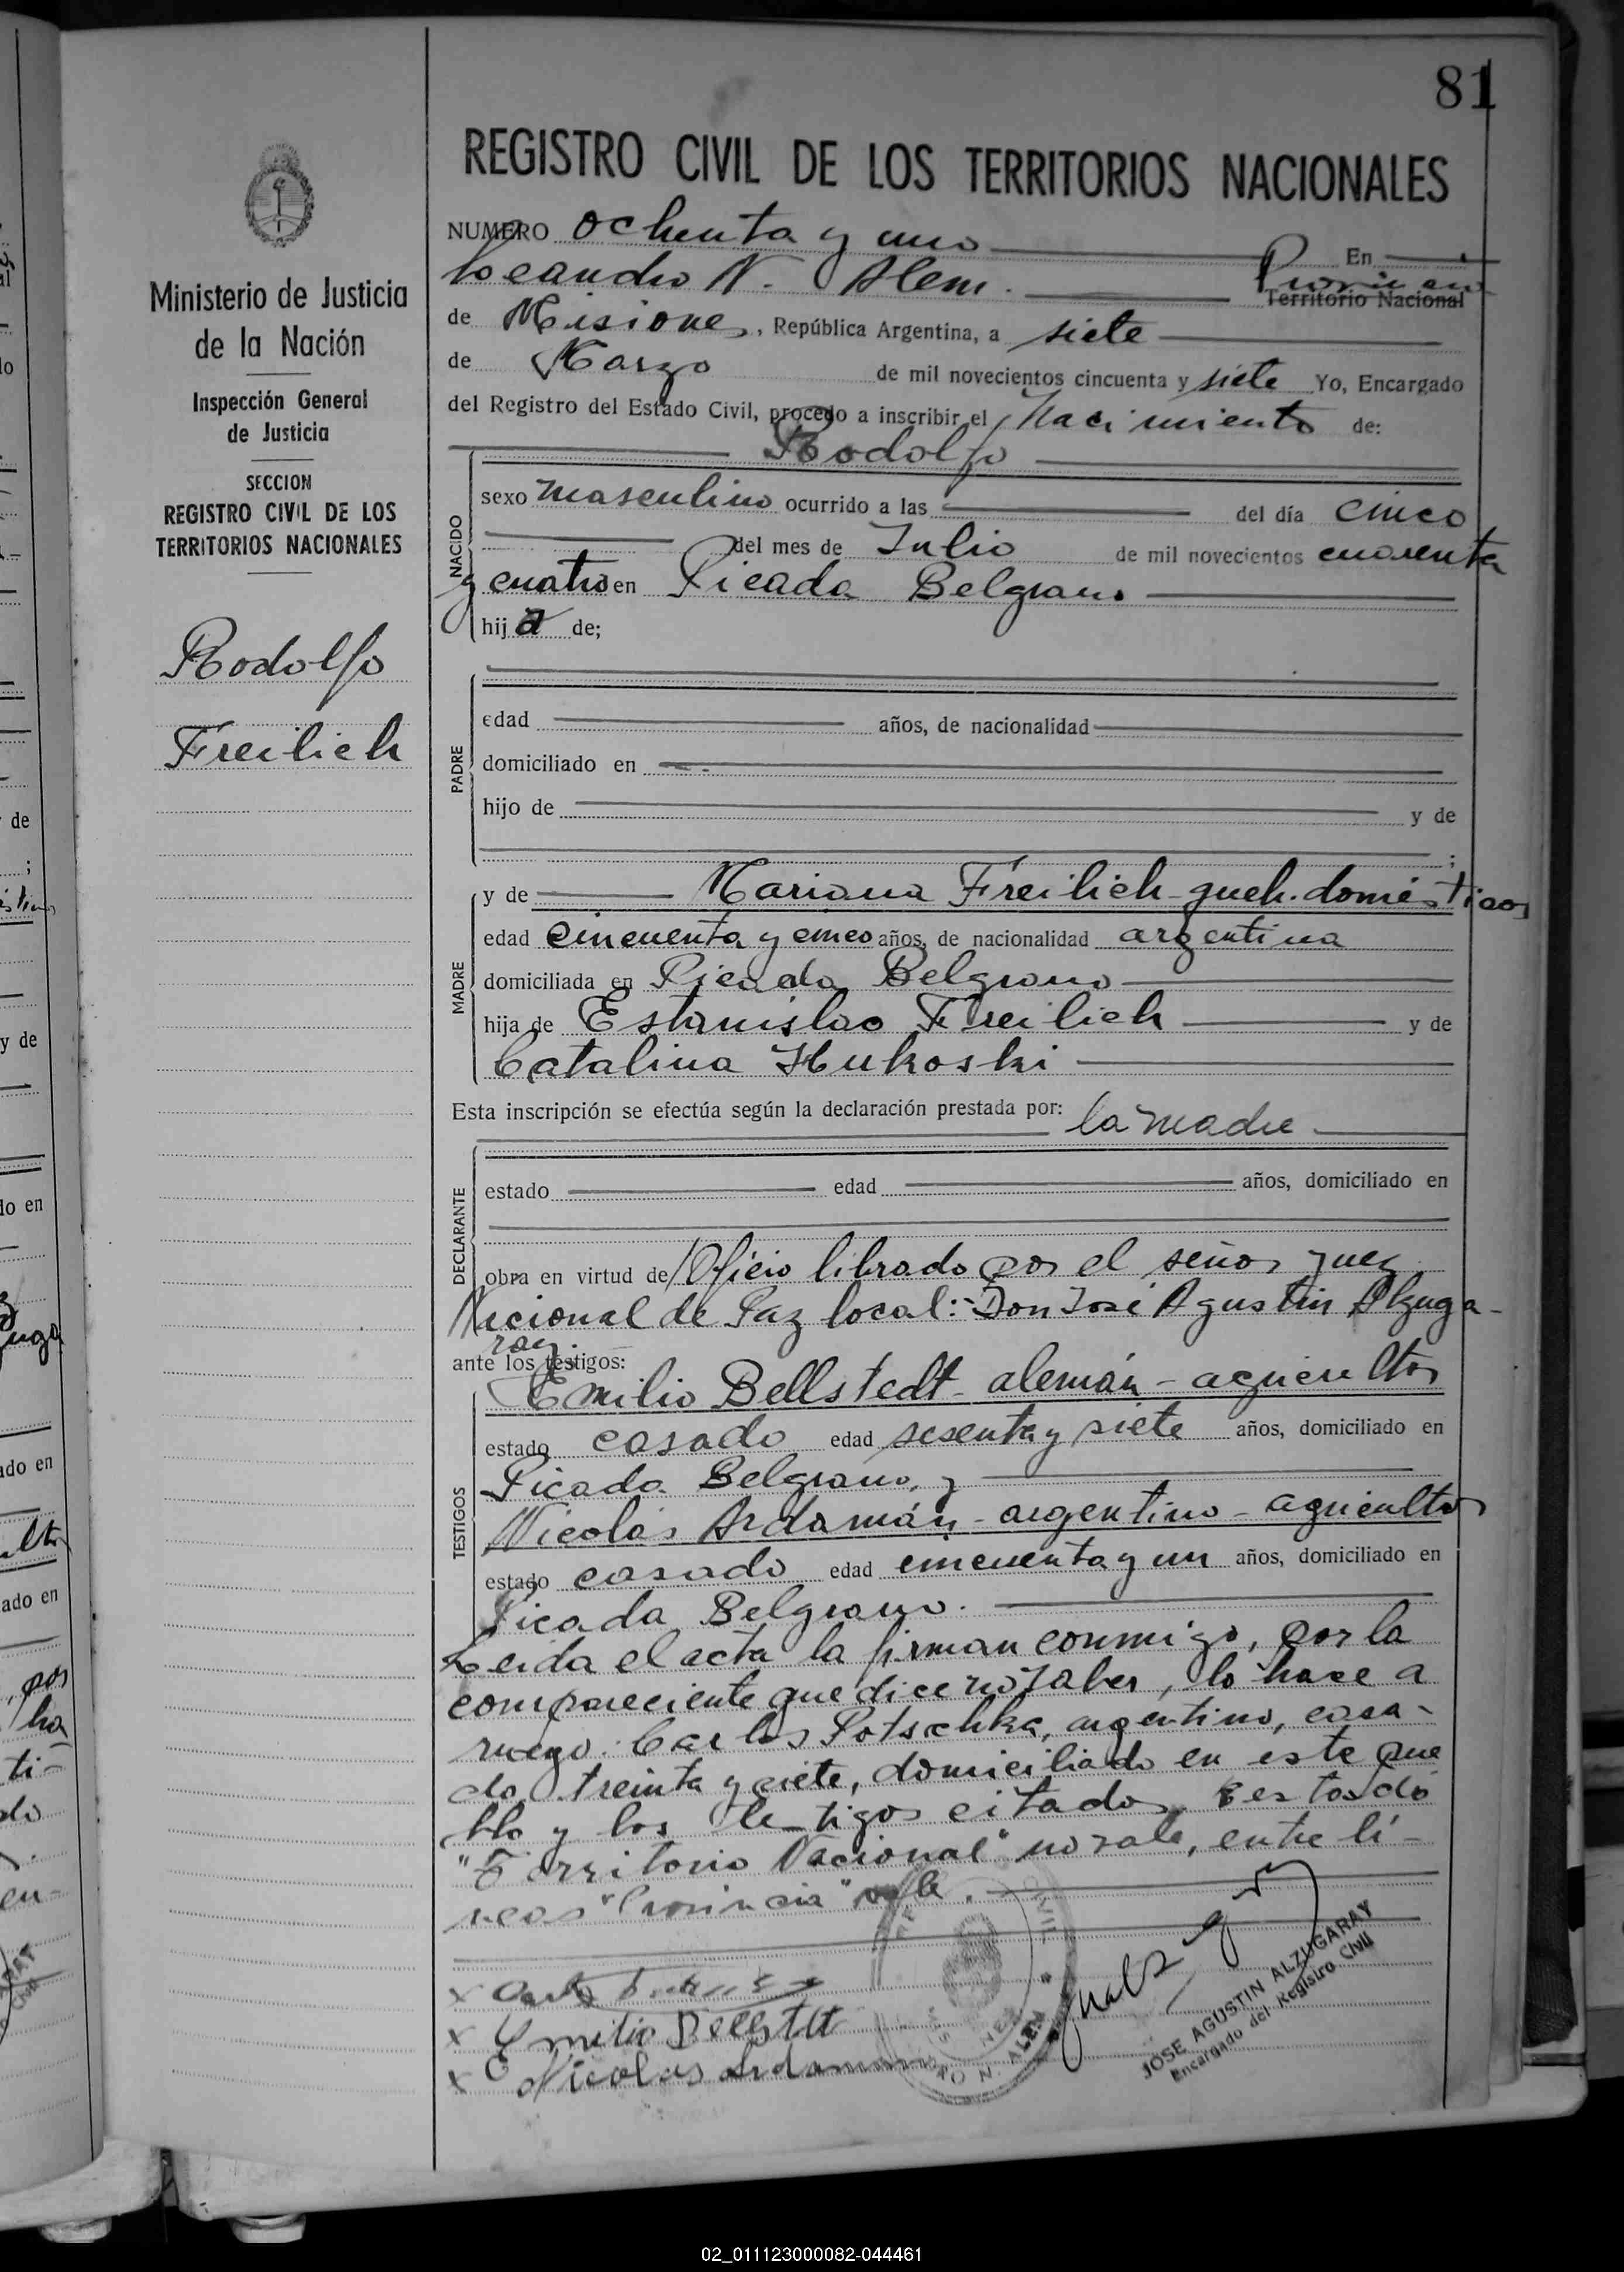 81
REGISTRO CIVIL DE LOS TERRITORIOS NACIONALES
NUMERO ochenta y uno En
Leandro N. Alem. Provincia
Territorio Nacional
de Misiones, República Argentina, a siete
de Marzo de mil novecientos cincuenta y siete Yo, Encargado
del Registro del Estado Civil, procedo a inscribir el Nacimiento de:
Rodolfo
NACIDO
sexo masculino ocurrido a las del día cinco
del mes de Julio de mil novecientos cuarenta
y cuatro en Picada Belgrano
hij de;
PADRE
edad años, de nacionalidad
domiciliado en
hijo de y de
;
MADRE
y de Mariana Freilich - queh. domésticos
edad cincuenta y cinco años, de nacionalidad argentina
domiciliada en Picada Belgrano
hija de Estanislao Freilich y de
Catalina Hukoski
Esta inscripción se efectúa según la declaración prestada por: la madre
DECLARANTE
estado edad años, domiciliado en
obra en virtud de Oficio librado por el señor Juez
Nacional de Paz local:- Don José Agustín Alzuga-
ray.
ante los testigos:
TESTIGOS
Emilio Bellstedt - alemán - agricultor
estado casado edad sesenta y siete años, domiciliado en
Picada Belgrano, y
Nicolás Ardamán - argentino - agricultor
estado casado edad cincuenta y un años, domiciliado en
Picada Belgrano.
Leida el acta la firman conmigo, por la
compareciente que dice no saber, lo hace a
ruego: Carlos Potschka, argentino, casa-
do, treinta y siete, domiciliado en este pue
blo y los testigos citados, Testado
"Territorio Nacional" no vale, entre lí-
neas "Provincia" vale.
x
x Emilio Bellstedt
x Nicolas Ardaman
JOSE AGUSTIN ALZUGARAY
Encargado del Registro Civil
CIVIL
N. ALEM
Ministerio de Justicia
de la Nación
Inspección General
de Justicia
SECCION
REGISTRO CIVIL DE LOS
TERRITORIOS NACIONALES
Rodolfo
Freilich
de
;
y de
do en
ado en
ado en
02_011123000082-044461